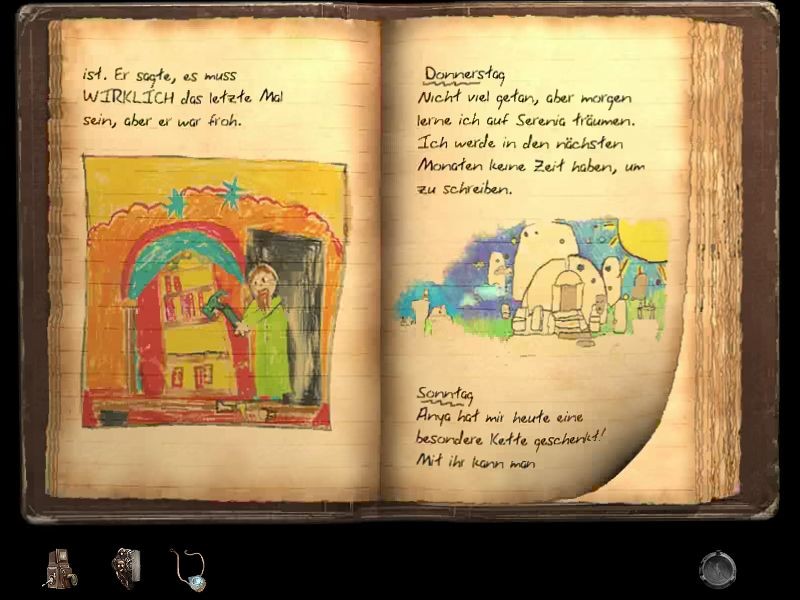 ist. Er sagte, es muss
WIRKLICH das letzte Mal
sein, aber er war froh.
Donnerstag
Nicht viel getan, aber morgen
lerne ich auf Serenia träumen.
Ich werde in den nächsten
Monaten keine Zeit haben, um
zu schreiben.
Sonntag
Anya hat mir heute eine
besondere Kette geschenkt!
Mit ihr kann man